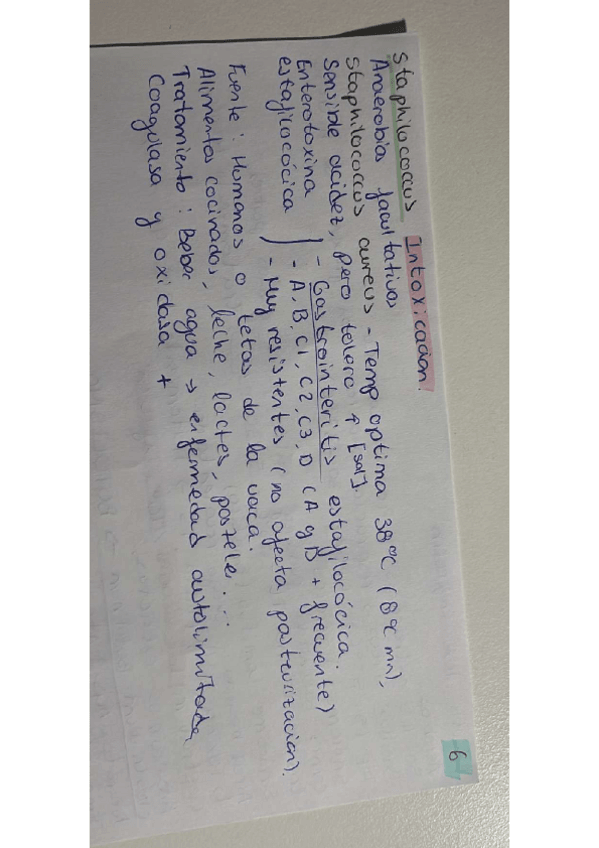 6
Staphilococcus Intoxicación.
Anaerobia facultativas
Staphilococcus aureus - Temp optima 38ºC (8ºC mn),
Sensible acidez, pero tolera ↑ [sal].
Enterotoxina } - Gastrointeritis estafilocócica.
estafilocócica - A, B, C1, C2, C3, D (A y D + frecuente)
- Muy resistentes (no afecta pasteurizacion).
Fuente: Humanos o tetas de la vaca.
Alimentos cocinados, leche, lactes, pasteles...
Tratamiento: Beber agua → enfermedad autolimitada
Coagulasa y oxidasa +